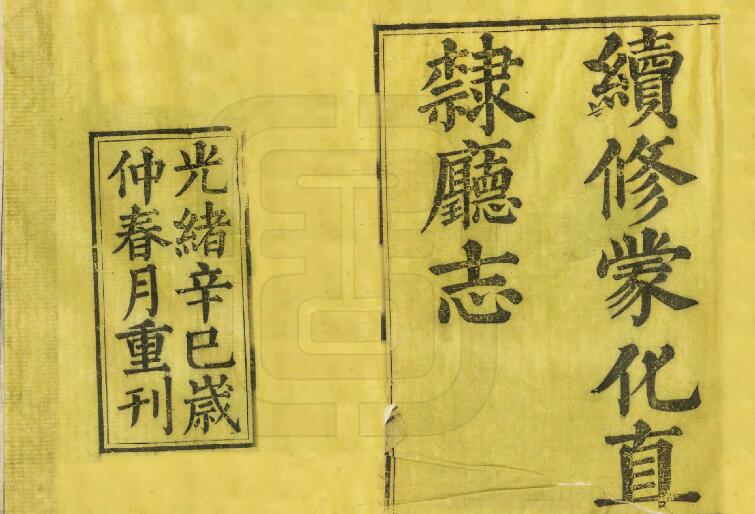 續修蒙化直
隸廳志
光緒辛巳歲
仲春月重刊